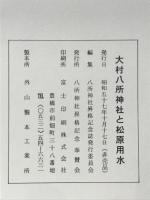 大村八所神社と松原用水
発行日　昭和五十七年十月十七日（非売品）
編集　八所神社昇格記念誌発行委員会
発行所　八所神社昇格記念奉賛会
印刷所　富士印刷株式会社
豊橋市前田町三十八番地
電（〇五三二）五四－六六三一
製本所　外山製本工業所